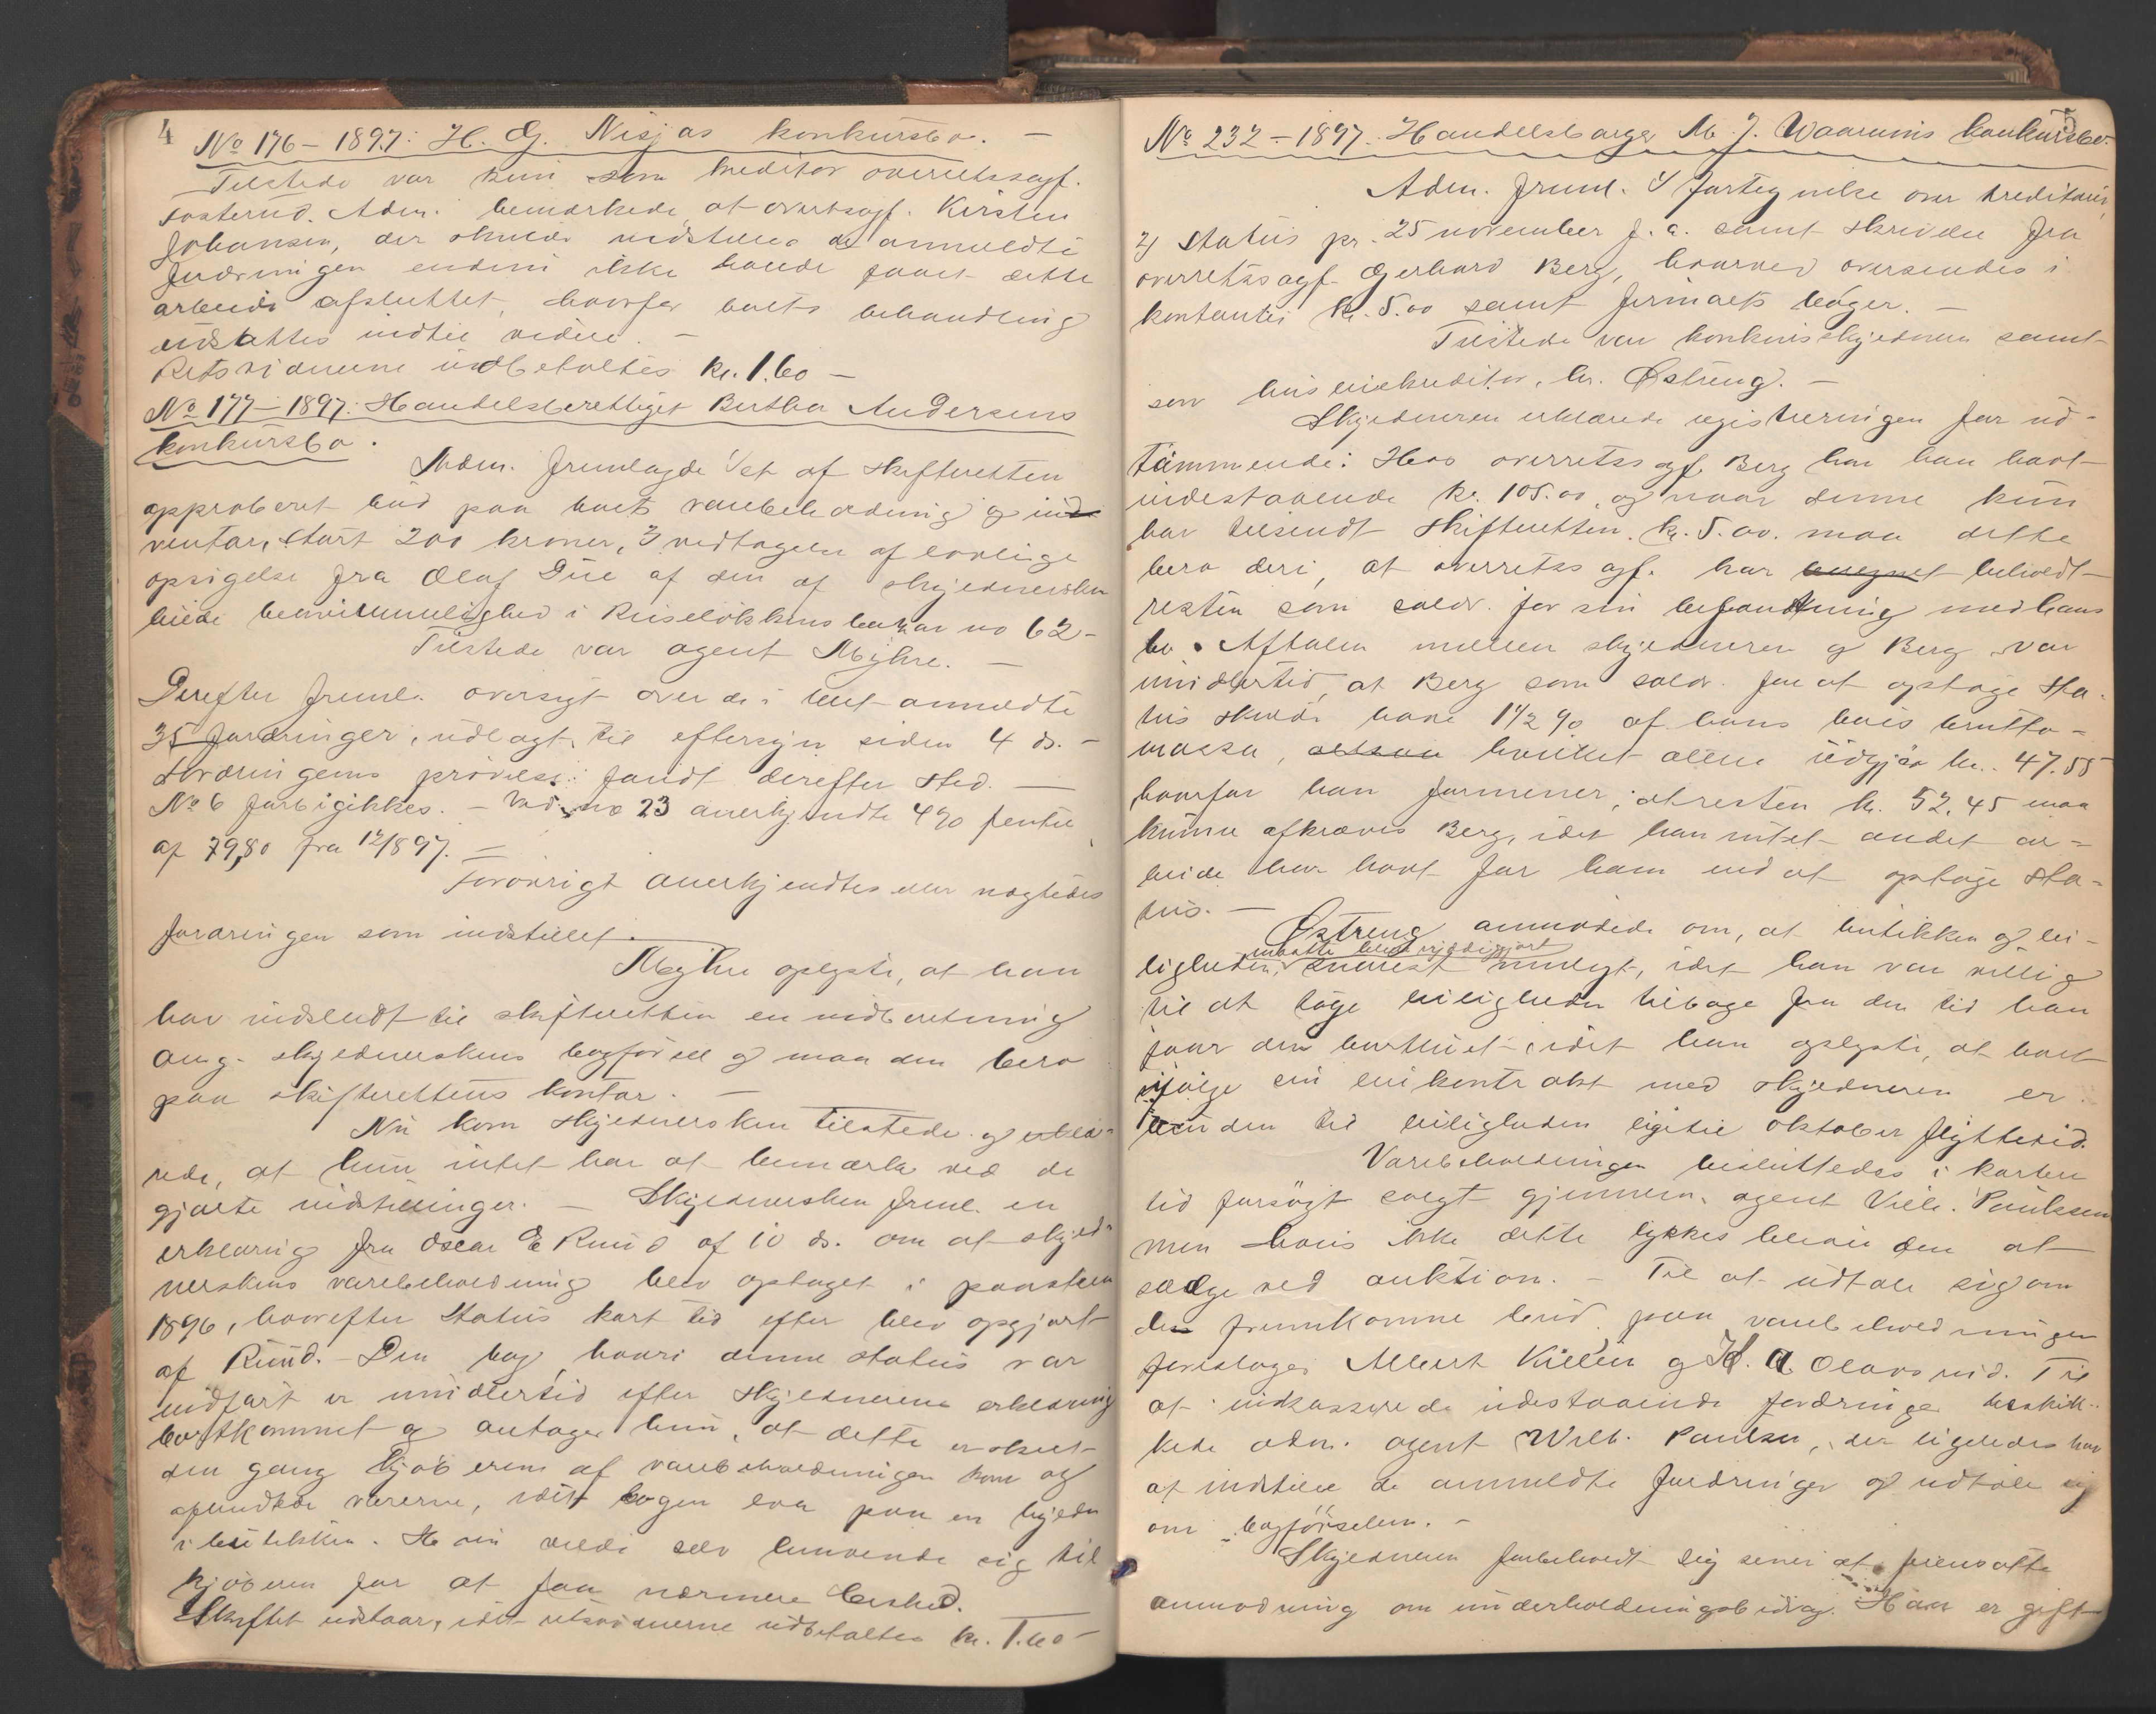 4
No 176 – 1897: H. G. Nisjas konkursbo. –
Tilstede var kun som kreditor overretssagf.
Fosterud. Adm. bemærkede, at overretssagf. Kirsten
Johansen, der skulde indstille de anmeldte
fordringer endnu ikke havde faaet dette
arbeide afsluttet, hvorfor boets behandling
udsattes indtil videre. –
Retsvidnerne udbetaltes kr. 1.60 –
No 177 – 1897: Handelsberettiget Bertha Andersens
konkursbo.
Adm. fremlagde 1/ et af skifteretten
approberet bud paa boets varebeholdning og in
ventar, stort 200 kroner, 2/ vedtagelse af lovlige
opsigelse fra Olaf Due af den af skjednersken
leiede beværtningslighed i Ruseløkkens bazar no 62 –
Tilstede var agent Myhre. –
Derefter freml. oversigt over de i boet anmeldte
35 fordringer, udlagt til eftersyn siden 4 ds. –
Fordringens prøvelse fandt derefter sted. –
No 6 forbigikkes. – Ved no 23 anerkjendte 4% rente
af 79,80 fra 12/1897. –
Forøvrigt anerkjendtes eller nægtedes
fordringen som indstillet.
Myhre oplyste, at han
har indsendt til skifteretten en indberetning
ang. skjednerskens bogførsel og maa den bero
paa skifterettens kontor. –
Nu kom skjednersken tilstede og erklæ-
rede, at hun intet har at bemærke ved de
gjorte indstillinger. – Skjednersken freml. en
erklæring fra Oscar E Ruud af 10 ds. om at skjed-
nerskens varebeholdning blev optaget i paasken
1896, hvorefter status kort tid efter blev opgjort
af Ruud. – Den bog hvori denne status var
indført er imidlertid efter skjednerens erklæring
bortkommet og antager hun, at dette er skeet
den gang kjøberne af varebeholdningen kom og
afhendtede varerne, idet bogen laa paa en hylde
i butikken. Hun vilde selv henvende sig til
kjøberen for at faa nærmere besked.
Skiftet udstaar, idet retsvidnerne udbetaltes kr. 1.60 –
5
No 232 – 1897. Handelsborger M. J. Waarums konkursbo.
Adm. freml. 1/ fortegnelse over kreditorer,
2/ Status pr. 25 november f. a. samt skrivelse fra
overretssagf. Gerhard Berg, hvorved oversendes i
kontanter kr. 5.00 samt firmaets bøger. –
Tilstede var konkursskjedneren samt
som huseiekreditor, hr. Østreng. –
Skjedneren erklærede registreringen for ud-
tømmende: Hos overretssagf. Berg har han havt
indestaaende kr. 105.00, og naar denne kun
har tilsendt skifteretten kr. 5.00. maa dette
bero deri, at overretssagf. har beregnet beholdt
resten som salær for sin befatning med hans
bo. Aftalen mellem skjedneren og Berg var
imidlertid, at Berg som salær for at optage sta-
tus skulde have 1½ % af hans bois brutto-
massa, altsaa hvilket alene udgjør kr. 47.55
hvorfor han formener, at resten kr. 52.45 maa
kunne afkræves Berg, idet han intet andet ar-
beide har havt for ham end at optage sta-
tus. –
Østreng anmodede om, at butikken og lei-
maatte blive ryddiggjort
ligheden, snarest muligt, idet han var villig
til at tage leiligheden tilbage fra den tid han
faar den bortleiet, idet han oplyste, at boet
ifølge sin leiekontrakt med skjedneren er
bunden til leiligheden ligetil oktober flyttetid.
Varebeholdningen besluttedes i kortere
tid forsøgt solgt gjennem agent Vilh. Paulsen
men hvis ikke dette lykkes bliver den at
sælge ved auktion. – Til at udtale sig om
den fremkomne bud paa varebeholdningen
foreslaaes Albert Killén og H. A. Olavsrud. Til
at inkassere de udestaaende fordringer beskik-
kede adm. agent Wilh. Paulsen, der ligeledes har
at indstille de anmeldte fordringer og udtale sig
om bogførselen. –
Skjedneren forbeholdt sig senere at fremsætte
anmodning om underholdningsbidrag. Han er gift